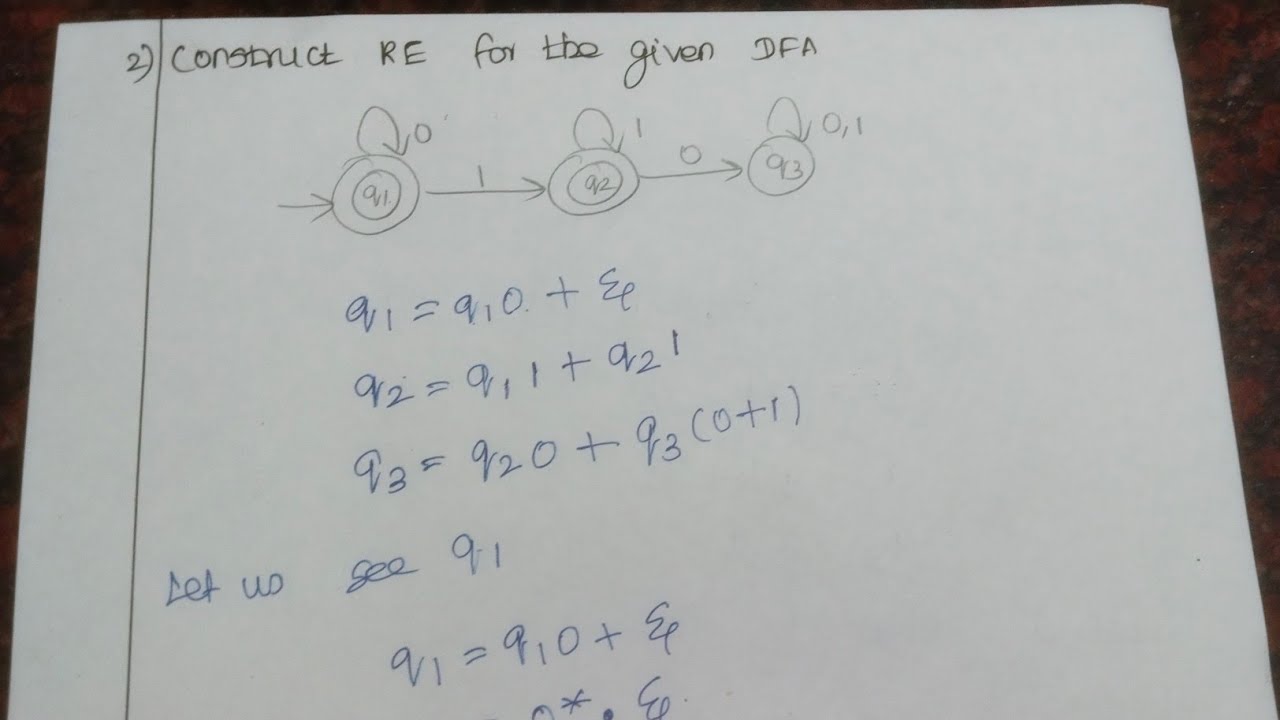 2) Construct RE for the given DFA
0 1 0,1
q1 1 q2 0 q3
q1 = q10 + ε
q2 = q11 + q21
q3 = q20 + q3(0+1)
Let us see q1
q1 = q10 + ε
= 0* . ε